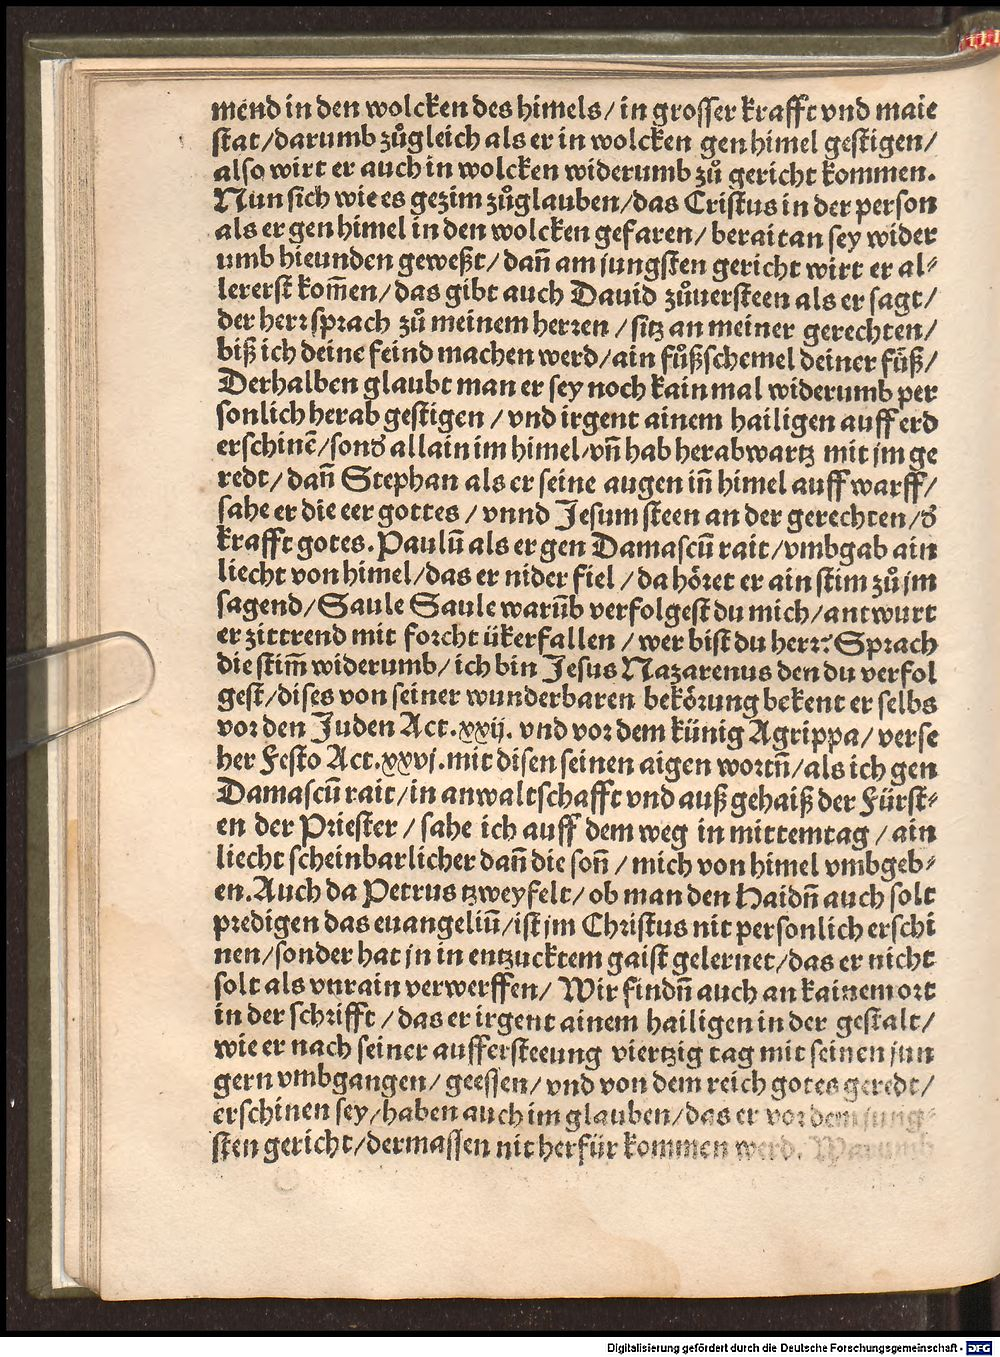 mend in den wolcken des himels/ in grosser krafft vnd maie
stat/darumb zůgleich als er in wolcken gen himel gestigen/
also wirt er auch in wolcken widerumb zů gericht kommen.
Nun sich wie es gezim zůglauben/das Cristus in der person
als er gen himel in den wolcken gefaren/ berait an sey wider
umb hieunden geweßt/ dañ am jungsten gericht wirt er al⸗
lererst kom̃en/das gibt auch Dauid zůuersteen als er sagt/
der herr sprach zů meinem herren /sitz an meiner gerechten/
biß ich deine feind machen werd/ain fůßschemel deiner fůß/
Derhalben glaubt man er sey noch kain mal widerumb per
sonlich herab gestigen / vnd irgent ainem hailigen auff erd
erschinē/sonď allain im himel/vñ hab herabwartz mit jm ge
redt/ dañ Stephan als er seine augen iñ himel auff warff/
sahe er die eer gottes / vnnd Jesum steen an der gerechten/ď
krafft gotes. Paulū als er gen Damascū rait/vmbgab ain
liecht von himel/das er nider fiel /da höret er ain stim zů jm
sagend/Saule Saule warūb verfolgest du mich/antwurt
er zittrend mit forcht ükerfallen / wer bist du herr? Sprach
die stim̃ widerumb/ ich bin Jesus Nazarenus den du verfol
gest/dises von seiner wunderbaren bekörung bekent er selbs
vor den Juden Act.xxij. vnd vor dem künig Agrippa/ verse
her Festo Act.xxvj.mit disen seinen aigen wortñ/als ich gen
Damascū rait/in anwaltschafft vnd auß gehaiß der Fürst⸗
en der Priester / sahe ich auff dem weg in mittemtag / ain
liecht scheinbarlicher dañ die soñ / mich von himel vmbgeb⸗
en.Auch da Petrus tzweyfelt/ ob man den Haidñ auch solt
predigen das euangeliū/ist jm Christus nit personlich erschi
nen/sonder hat jn in entzucktem gaist gelernet/das er nicht
solt als vnrain verwerffen/ Wir findñ auch an kainem ort
in der schrifft /das er irgent ainem hailigen in der gestalt/
wie er nach seiner auffersteeung viertzig tag mit seinen jun
gern vmbgangen/ geessen/ vnd von dem reich gotes geredt/
erschinen sey/haben auch im glauben/das er vor dem jung⸗
sten gericht/dermassen nit herfür kommen werd. Warumb
Digitalisierung gefördert durch die Deutsche Forschungsgemeinschaft - DFG